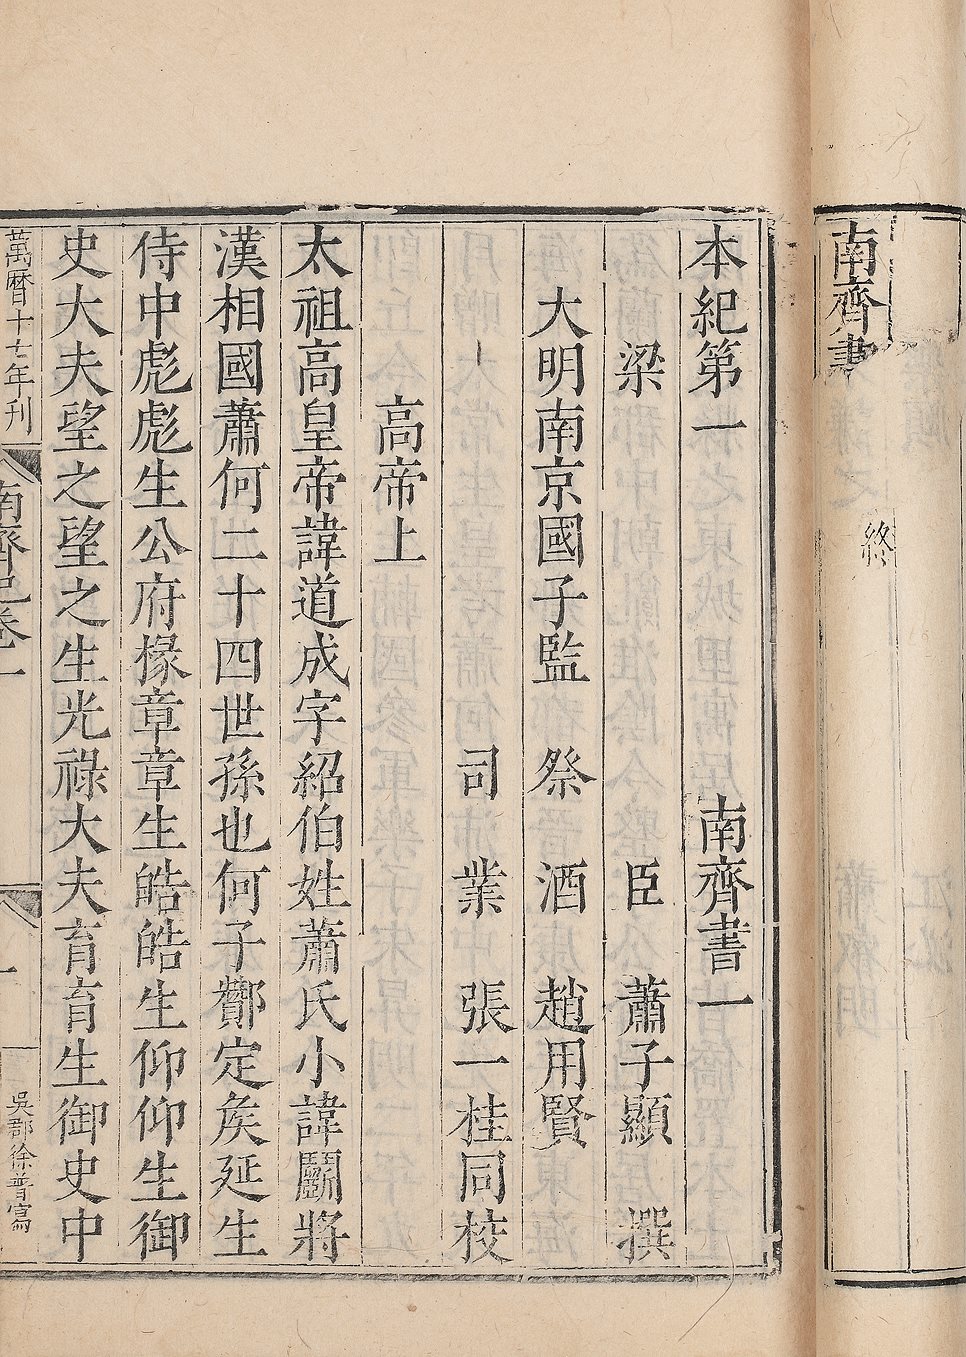 南齊書
終
本紀第一 南齊書一
梁 臣 蕭子顯 撰
大明南京國子監 祭 酒 趙用賢
司 業 張一桂同校
高帝上
太祖高皇帝諱道成字紹伯姓蕭氏小諱鬬將
漢相國蕭何二十四世孫也何子酇定矦延生
侍中彪彪生公府掾章章生皓皓生仰仰生御
史大夫望之望之生光祿大夫育育生御史中
萬曆十七年刋
南齊紀卷一
一
吳郡徐普寫